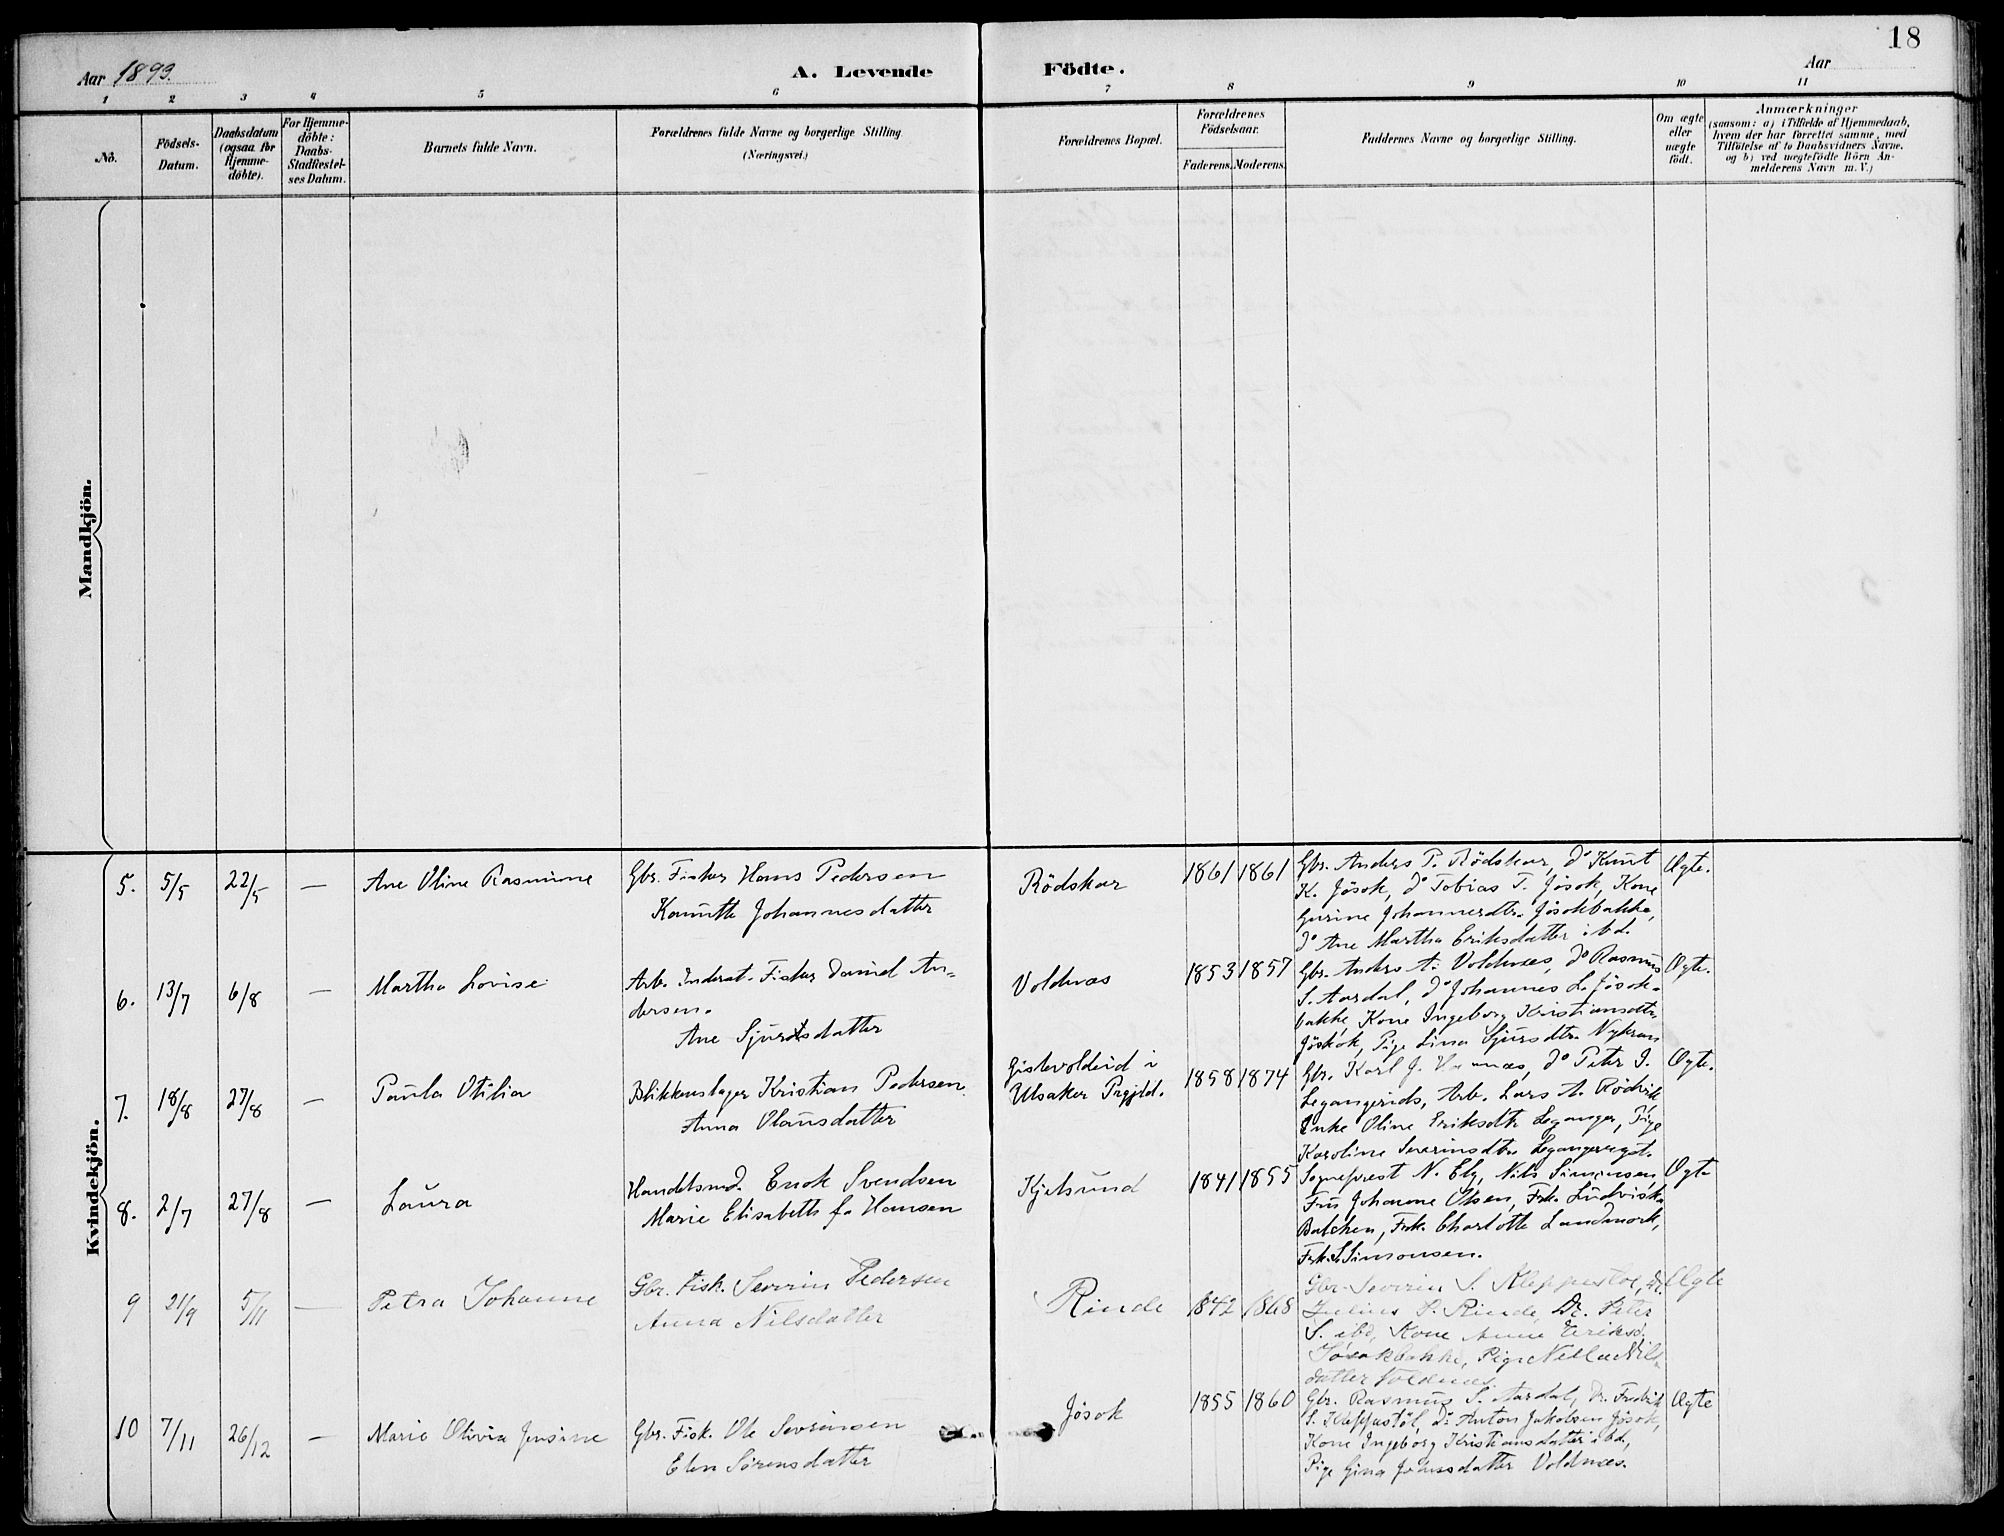 18
Aar 1893.
A. Levende Födte.
Aar
1 2 3 4 5 6 7 8 9 10 11
No.
Födsels-Datum.
Daabsdatum (ogsaa for Hjemme-döbte).
For Hjemme-döbte: Daabs-Stadfæstel-ses Datum.
Barnets fulde Navn.
Forældrenes fulde Navne og borgerlige Stilling.
(Næringsvei.)
Forældrenes Bopæl.
Forældrenes Födselsaar.
Faderens. Moderens.
Faddernes Navne og borgerlige Stilling.
Om ægte eller uægte født.
Anmærkninger
(saasom: a) i Tilfælde af Hjemmedaab,
hvem der har forrettet samme, med
Tilföielse af to Daabsvidners Navne.
og b) ved uægtefödte Börn An-
melderens Navn m. V.)
Mandkjön.
Kvindekjön.
5. 5/5 22/5 — Ane Oline Rasmine
Gbr. Fisker Hans Pedersen
Kanutte Johannesdatter
Rödskar
1861 1861
Gbr. Anders P. Rödskar, do Knut
K. Jösok, do Tobias T. Jösok, Kone
Gurine Johannesdtr. Jösokbakke,
do Ane Martha Eriksdatter ibd.
Ægte.
6. 13/7 6/8 — Martha Lovise
Arb. Inderst. Fisker Daniel An-
dersen.
Ane Sjursdatter
Voldnæs
1853 1857
Gbr. Anders A. Voldnæs, do Rasmus
S. Aardal, do Johannes L. Jösok-
bakke, Kone Ingeborg Kristiansdtr.
Jösok, Pige Lina Sjursdtr.
Ægte.
7. 18/8 27/8 — Paula Otilia
Blikkenslager Kristian Pedersen
Anna Olausdatter
i
Prgjld.
1858 1874
Gbr. Karl J. do Peter J.
Arb. Lars A. Rödvik
Enke Oline Eriksdtr Leganger, Pige
Karoline Severinsdtr.
Ægte.
8. 2/7 27/8 — Laura
Handelsmd. Enok Svendsen
Marie Elisabeth f. Hansen
Kjelsund
1841 1855
Sognepræst N. Elg, Nils Simonsen,
Fru Johanne Olsen, Frk. Ludvikke
Balchen, Frk. Charlotte Landmark,
Frk. S. Simonsen.
Ægte
9 21/9 5/11 — Petra Johanne
Gbr. Fisk. Severin Pedersen
Anna Nilsdatter
Rinde
1842 1868
Gbr. Severin S. Kleppestöe, Gbr.
Julius P. Rinde, Do. Peter
S. ibd, Kone Anne Eriksd.
Jösokbakke, Pige Nils-
datter Voldnæs
Ægte
10 7/11 26/12 — Marie Olivia Jensine
Gbr. Fisk. Ole Sevrinsen
Elen Sörensdatter
Jösok
1855 1860
Gbr. Rasmus S. Aardal, Do. Fredrik
S. Kleppestöl, do Anton Jakobsen Jösok,
Kone Ingeborg Kristiansdatter ibd,
Pige Gina Jensdatter Voldnæs.
Ægte